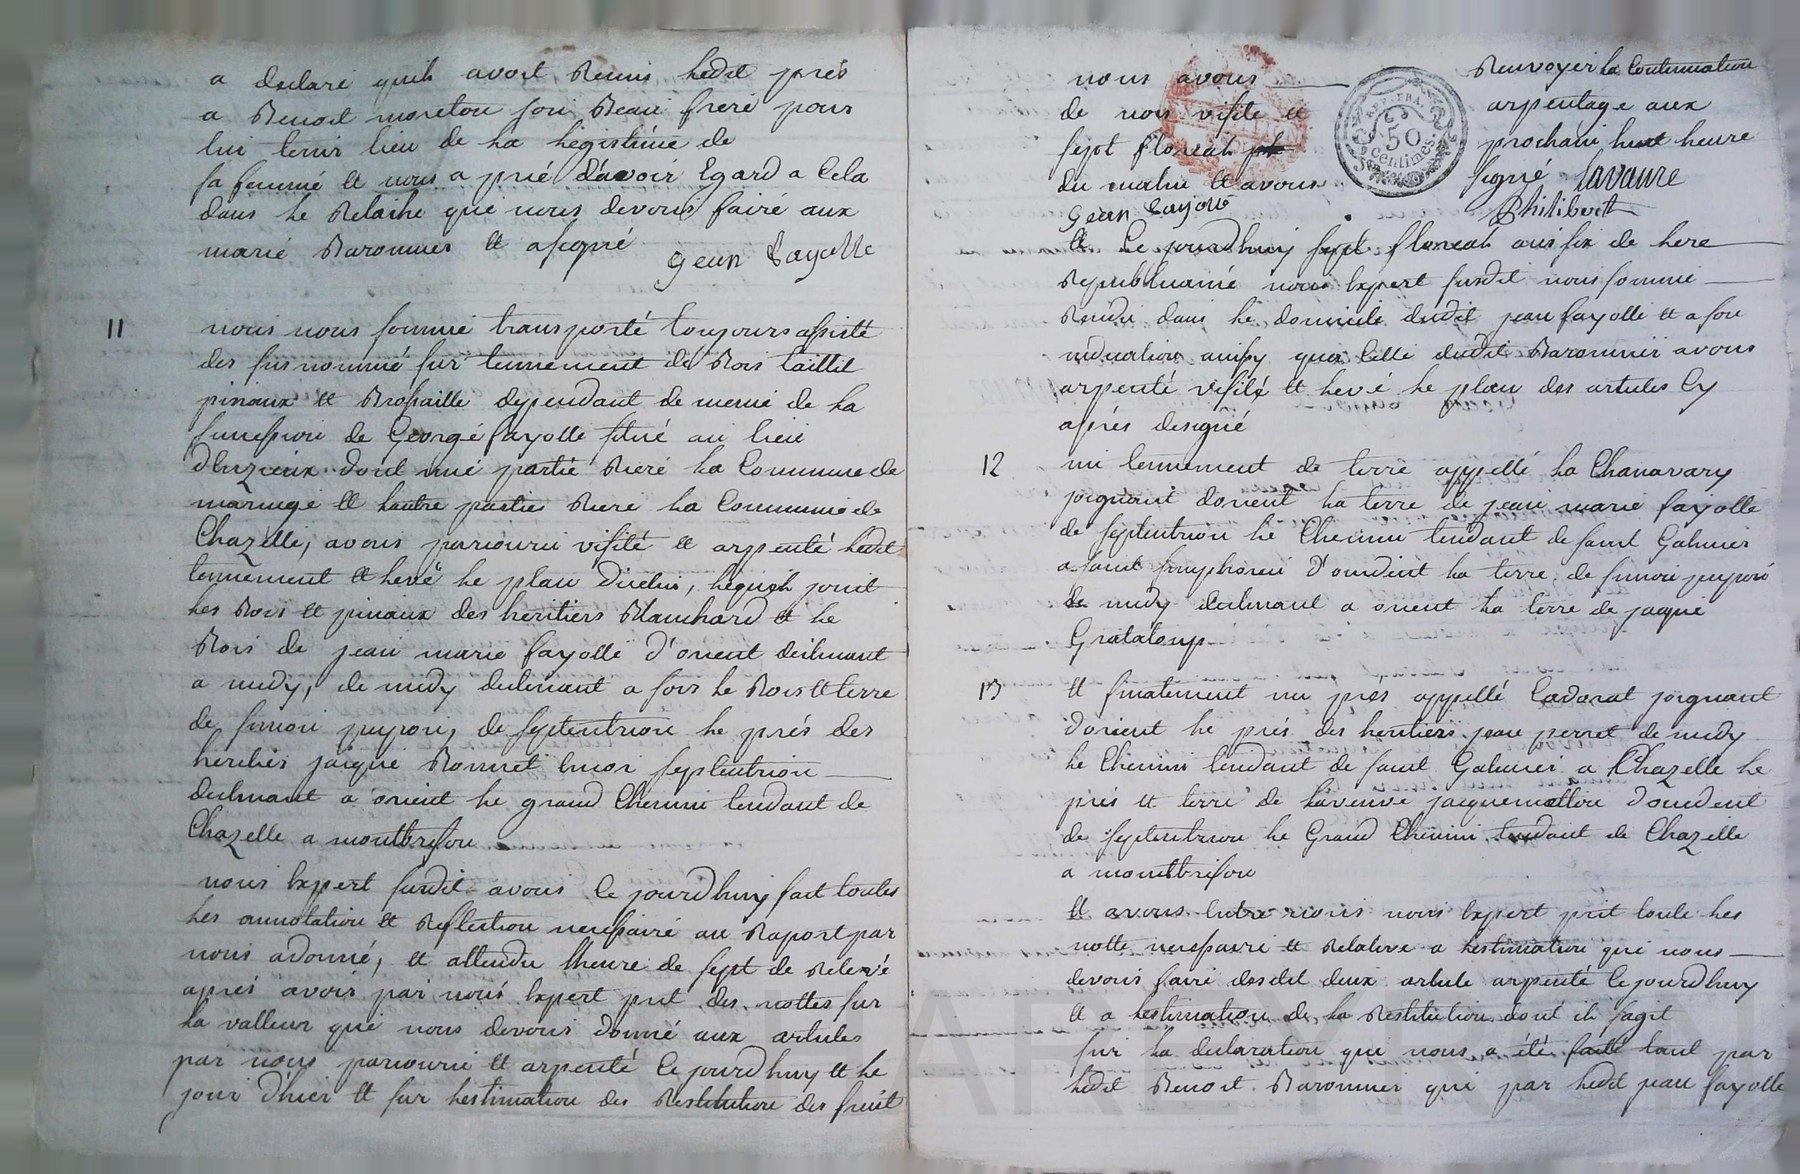 a declaré quil avoit Remis ledit prés
a Benoit moreton son Beau freré pour
lui tenir lieu de la legistimé de
sa femmé et nous a prié d'avoir Egard a Cela
dans le Relache que nous devons fairé aux
marié Baronnier et asigné
gean Fayolle
11
nous nous sommé transporté toujours assisté
des susnommé sur tennement de Bois taillit
pinaux et Brossaille dependant de memé de la
succession de Georgé fayolle situé au lieu
d'Euzieux dont uné partié Rieré la Commune de
maringe et lautre parties Rieré la Commune de
Chazelle, avons parcouru visité et arpenté ledit
tennement et levé le plan diceluy, lequel joint
les Bois et pinaux des heritiers Blanchard et le
Bois de jean marie fayolle d'orient declinant
a midy, de midy declinant a soir le Bois et terre
de simon pupon, de septentrion le prés des
heritiers jaque Bonnet Encor septentrion
declinant a orient le grand Chemin tendant de
Chazelle a montbrison
nous Expert susdit avons Ce jourdhuy fait toutes
les annotation et Reflection necessairé au Raport par
nous adonné, et attendu lheure de sept de Relevé
aprés avoir par nous Expert prit des nottes sur
la valleur que nous devons donné aux articles
par nous parcouru et arpenté Ce jourdhuy et le
jour d'hier et sur lestimation des Restitution des fruit
nous avons Renvoyer la Continuation
de nos visite et arpentage aux
sept floreal prochain huit heure
du matin et avons signé Lavaure
gean Fayolle Philibert
Et Ce jourdhuy sept floreal an six de lere
Republicainé nous Expert susdit nous sommé
Rendu dans le domicile dudit jean fayolle et a son
indication ainsy qua Celle dudit Baronnier avons
arpenté visité et levé le plan des articles Cy
aprés designé
12
un tennement de terre appellé la Chanavary
joignant dorient la terre de jean marie fayolle
de septentrion le Chemin tendant de saint Galmier
a saint simphorien d'occident la terre de simon pupon
de midy declinant a orient la terre de jaque
Grataloup
13
Et finalement un pres appellé Cadorat joignant
dorient le prés des heritiers jean perret de midy
le Chemin tendant de saint Galmier a Chazelle le
prés et terre de la veuve jacquemetton doccident
de septentrion le Grand Chemin tendant de Chazelle
a montbrison
Et avons Entre nous nous Expert prit toute les
notte necessaire et Relative a lestimation que nous
devons fairé desdit deux article arpenté Ce jourdhuy
Et a lestimation de la Restitution dont il sagit
sur la declaration que nous a été faite tant par
ledit Benoit Baronnier que par ledit jean fayolle
REP. FRA.
50
centimes